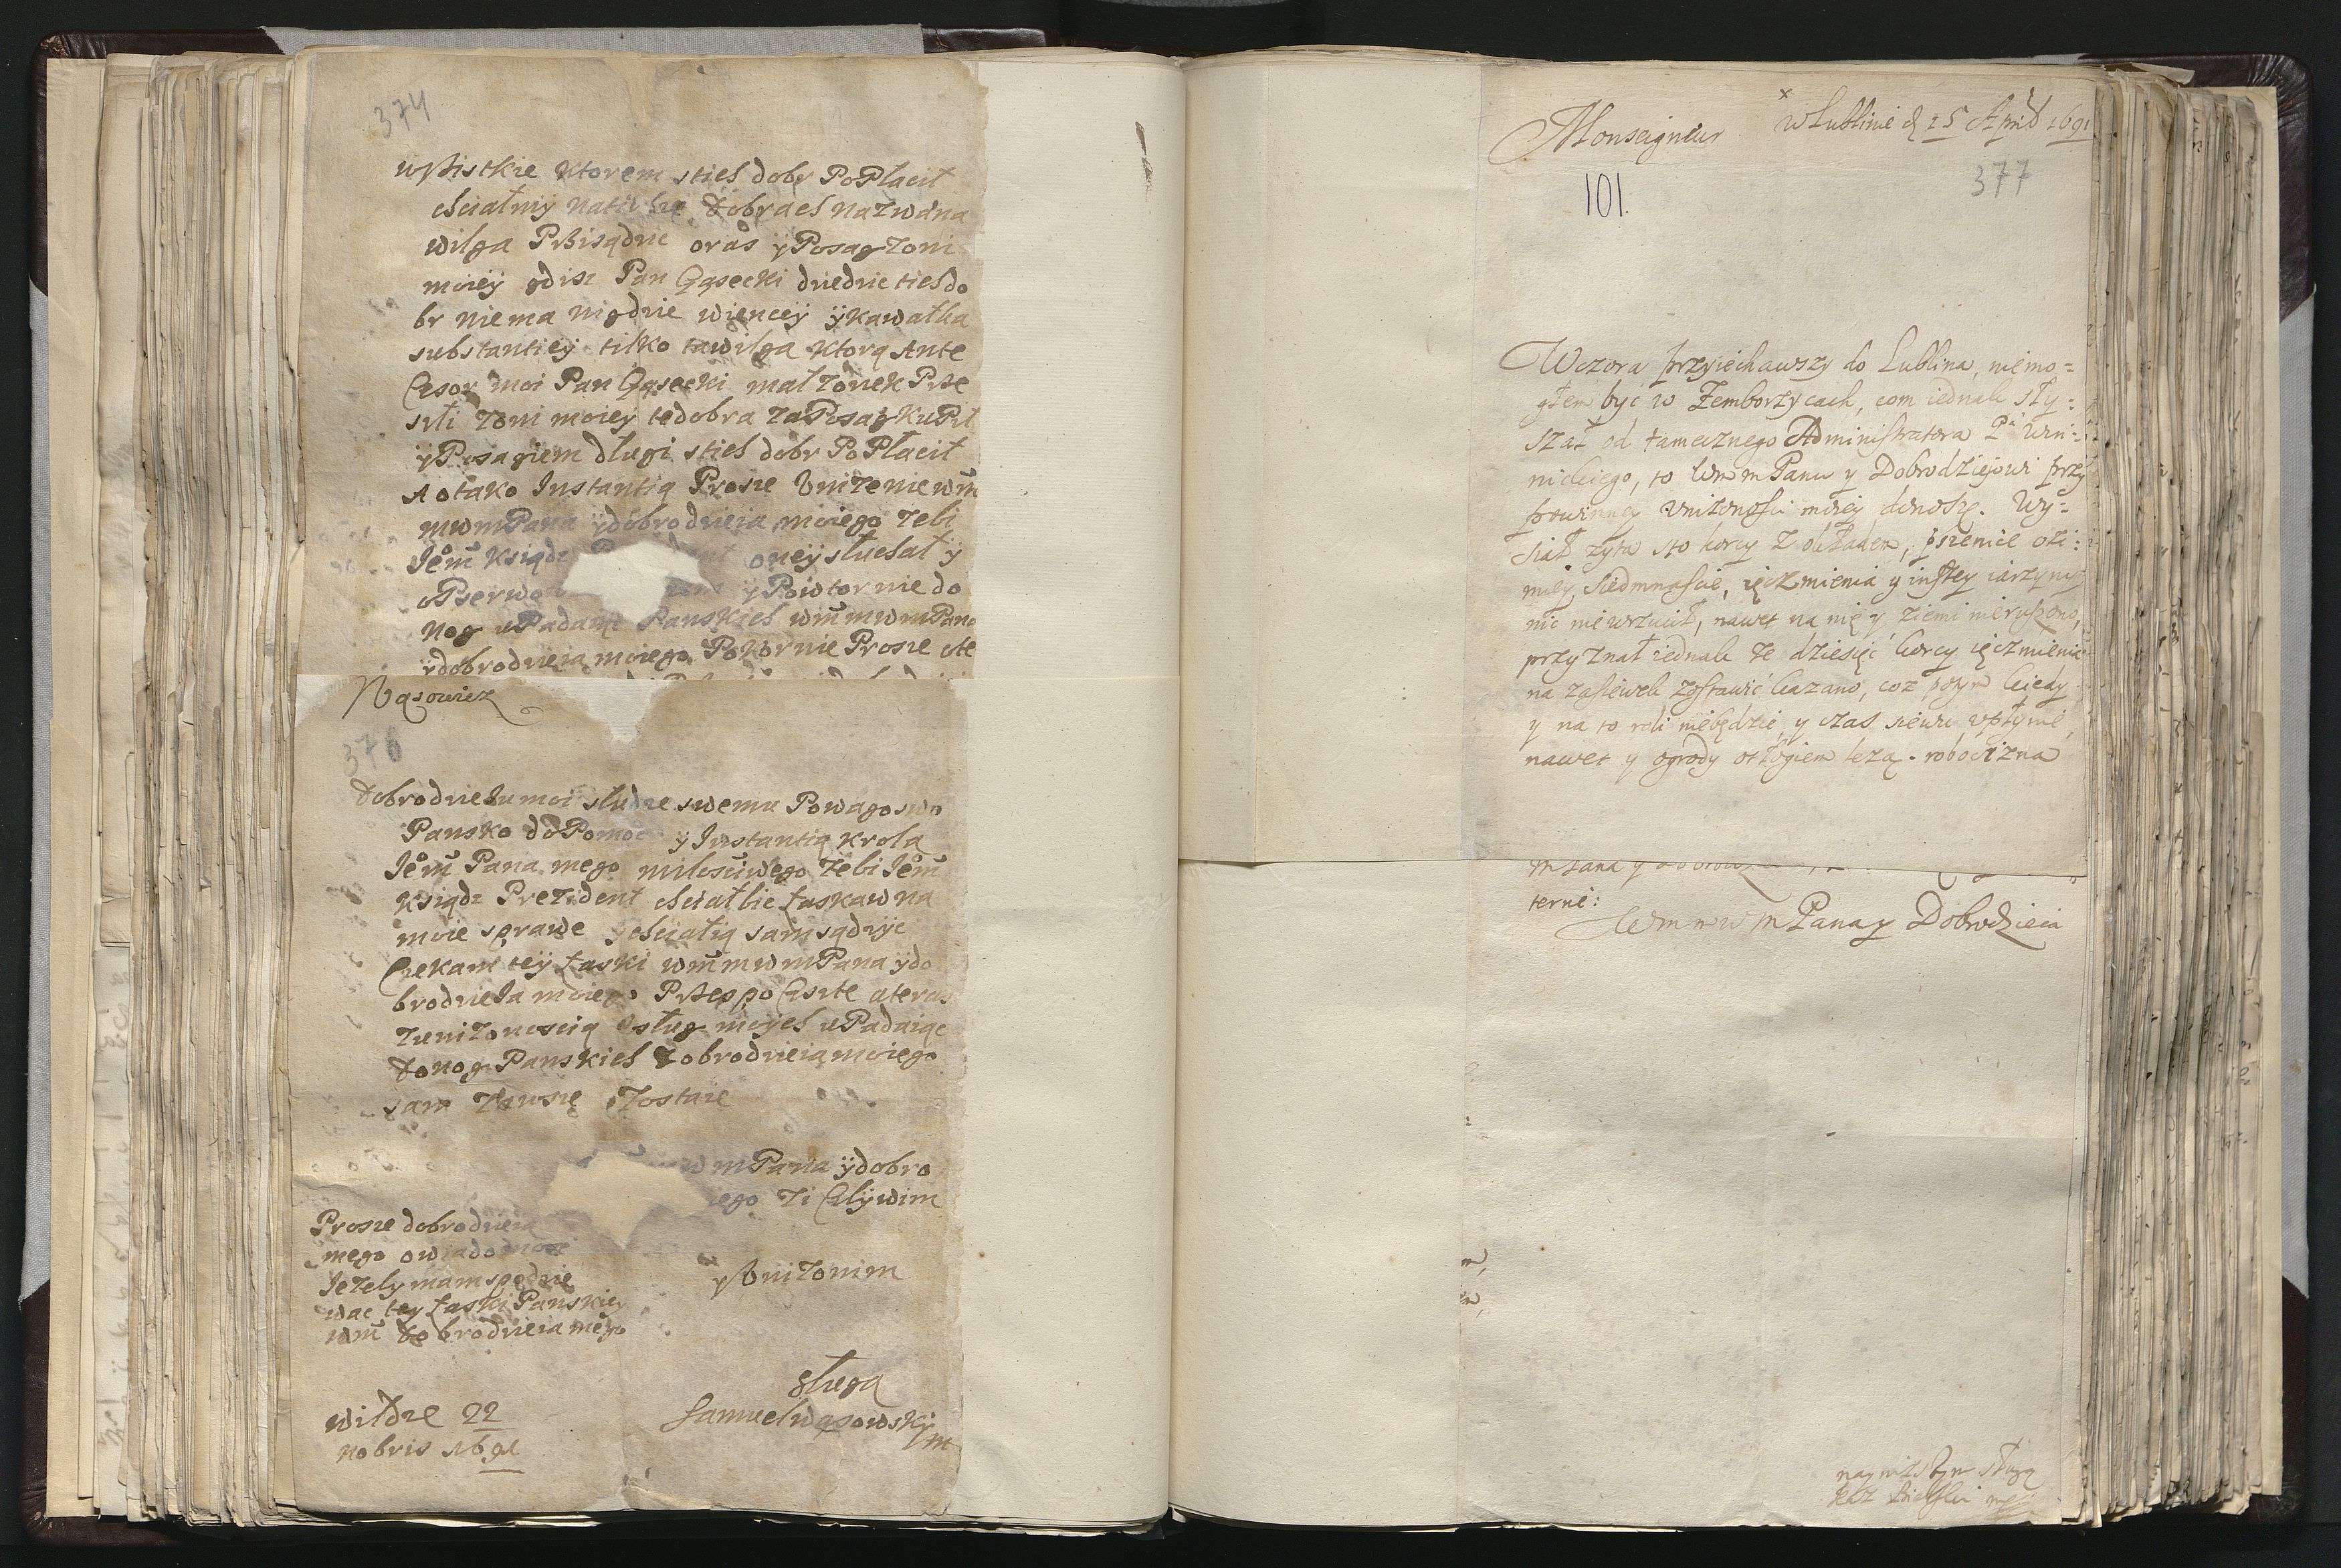 374
wßistkie ktorem stich dobr PoPłacił
chciałmÿ natichze dobrach nazwana
wilga Pßisądzic oras ÿ Posag zoni
moieÿ gdisz Pan Gąsecki dziedzic tich do
br niema nigdzie wienceÿ ÿ kawałka
substantieÿ tilko ta wilga ktorą Ante
Cesor moi Pan Gąsecki małzonek Pße
szłi zoni moieÿ te dobra za Posag kuPił
ÿ Posagiem długi stich dobr PoPłacił
A o tako Instantią Prosze Vnizenie wm̃
mwmPana ÿ dobrodzieia moiego zebi
Jem̃ Ksiądz oneÿ słuchał ÿ
ÿ Powtornie do
nog uPadaiąc Panskich wm̃mwmPana
ÿ dobrodzieia moiego Pokornie Prosze ote
Wąsowicz
376
dobrodzieiu moi słudze swemu Powago swo
Pansko doPomoc ÿ Instantią krola
Jem̃ Pana mego miłosciwego zebi Jem̃
Ksiądz Prezident chciał bic łaskaw na
moie sprawe ÿ chciał ią sam sądzÿc
Czekam teÿ łaski wm̃mwmPana ÿ do
brodzieia moiego Pßes po Cszte a teras
z unizonoscią Vsług moÿch uPadaiąc
do nog Panskich dobrodzieia moiego
sam zawsze zostaie
wmPana ÿ dobro
iego zi Czlÿwim
Prosze dobrodzieia
mego o wiadomosc
Jezely mam spodzie
wac tey łaski Panskiey
wm̃ dobrodzieia mego
ÿ Vnizonim
sługą
Samuel wąsowskÿ
mp
wildze 22
Nobris 1691
Monseigneur
w Lublinie d 25 April 1691
377
101.
Wczora przyiechawszy do Lublina, niemo=
głem być w Zemborzycach, com iednak sły:
szał od tamecznego Administratora Pa Win:
nickiego, to Wmm Panu y Dobrodziejowi przy
powinney Vnizonosci moiey donoszę. Wy=
siał zyta sto korcy z okładem, pszenice ozi:
mey siedmnascie, ięczmienia y inszey iarzyny
nic niewrzucił, nawet na nię y ziemi nieruszono,
przyznał iednak ze dziesięć korcy ięczmienia
na zasiewek zostawić kazano, coz potym kiedy
y na to roli niebędzie, y czas siewu vpłynie,
nawet y ogrody odłogiem lezą. robocizna
m Pana y Dobrodzieia
terne:
Wm m w m Pana y Dobrodzieia
nayniższym sługą